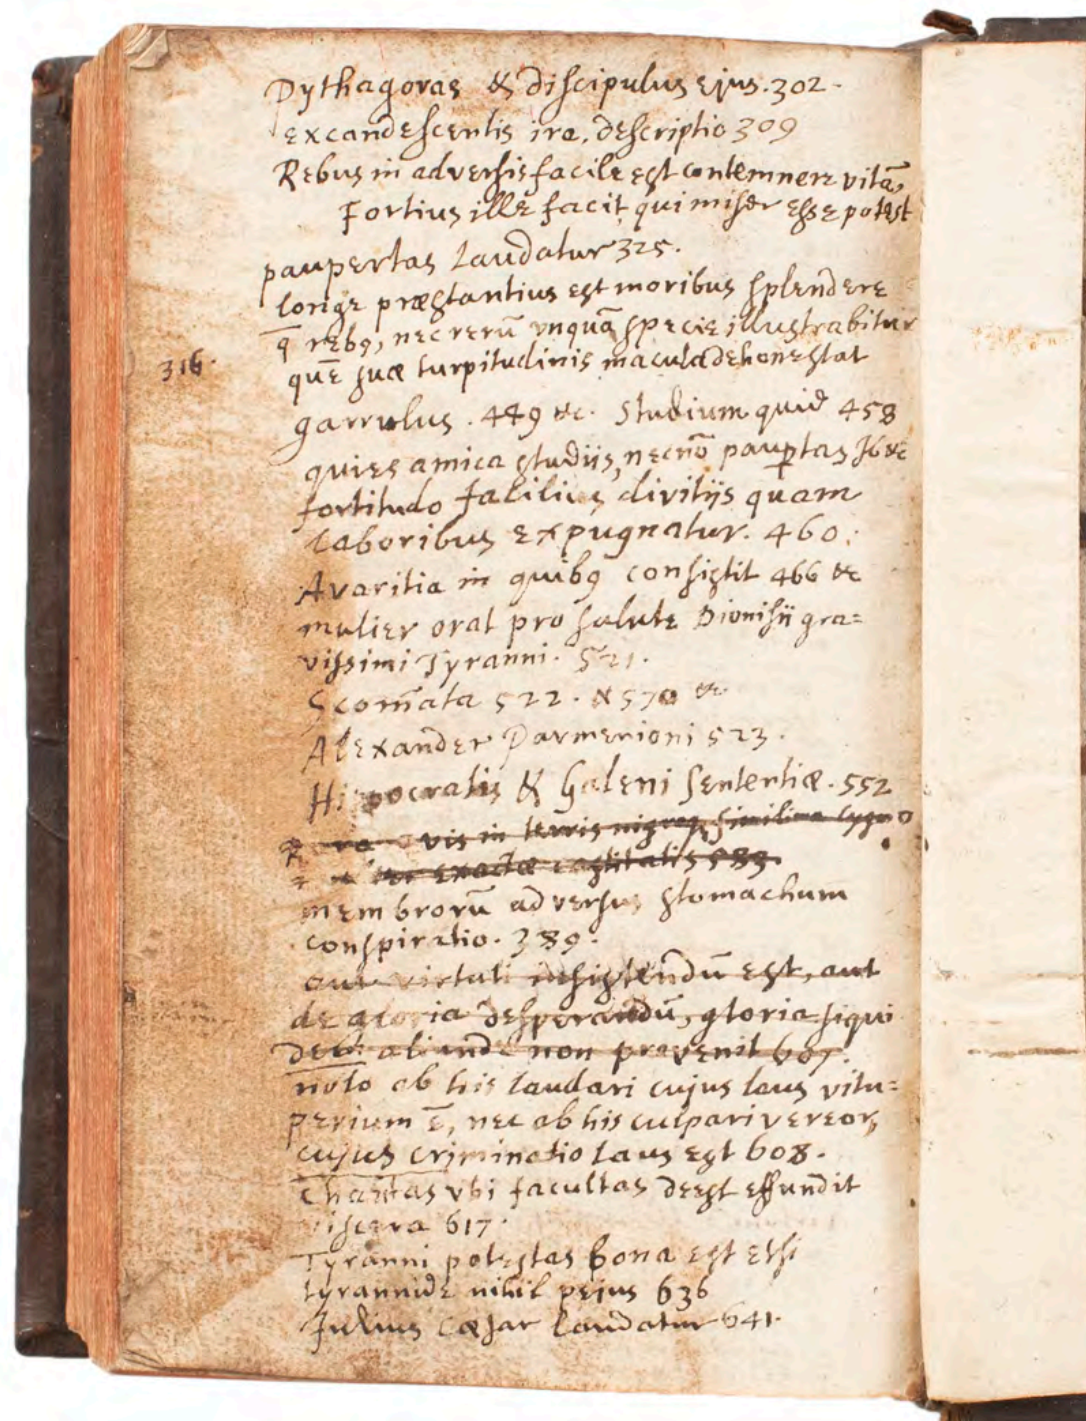 Pythagoras & discipulus ejus. 302.
excandescentis iræ, descriptio 309
Rebus in adversis facile est contemnere vitā,
Fortius ille facit qui miser esse potest
paupertas laudatur 325.
longe præstantius est moribus splendere
q̄ rebꝯ, nec rerū vnquā specie illustrabitur
316. quē suæ turpitudinis macula dehonestat
garrulus . 449 &c. Studium quid 458
quies amica studijs, necnō paup̄tas Ib &c
fortitudo facilius divitijs quam
laboribus expugnatur. 460.
Avaritia in quibꝯ consistit 466 &c
mulier orat pro salute Dionisii gra=
vissimi Tyranni. 521.
Scom̄ata 522. & 570 &c
Alexander Parmenioni 523.
Hippocratis & Galeni Sententiæ. 552
Rara avis in terris nigroq̨ simillima cygno
exactæ castitatis 583.
membrorū adversus stomachum
conspiratio. 389.
aut virtuti insistendū est, aut
de gloria desperandū, gloria siqui
aliunde non provenit 607.
nolo ab his laudari cujus laus vitu=
perium ē, nec ab his culpari vereor,
cujus criminatio laus est 608.
Charitas vbi facultas deest effundit
viscera 617.
Tyranni potestas bona est etsi
tyrannide nihil pejus 636
Julius Cæsar laudatur 641.